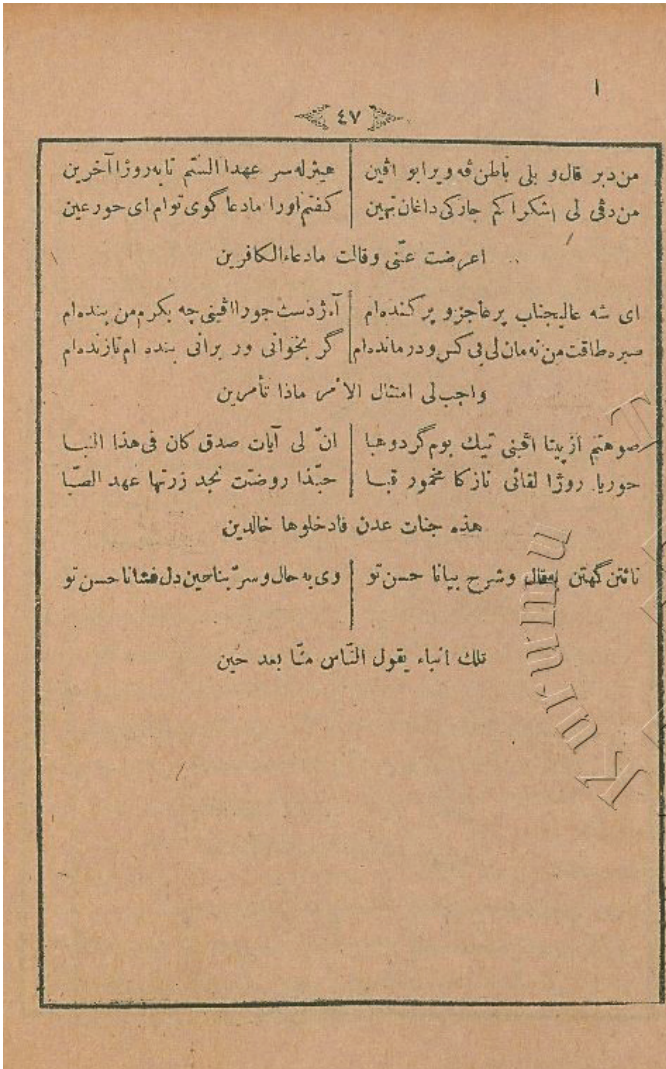 ١
٤٧
من دبر قال و بلى باطن ڤه ویرابو اڤین هیژ له سر عهدا الستم تا به روژا آخرین
من دڤی لی اشکرا کم جازکی داغان تهین کفتم اورا مادعا گوی توام ای حور عین
اعرضت عنّی وقالت مادعاء الكافرین
ای شه عالیجناب پر عاجز و پر کنده‌ام آه ژ دست جورا اڤینی چه بکرم من بنده‌ام
صبره طاقت من نه مان لی بی کس و در مانده‌ام گر بخوانی ور برانی بنده ام تا زنده‌ام
واجب لی امتثال الامر ماذا تأمرین
صوهتم از پیتا اڤینی تیك بوم گرد و هبا انّ لی آیات صدق کان فی هذا النبا
حوریا روژا لقائی نازکا مخمور قبا حبّذا روضت نجد زرتها عهد الصّبا
هذه جنات عدن فادخلوها خالدین
نائتن گهتن بمقال و شرح بیانا حسن تو وی به حال و سرّ بناحین دل فشانا حسن تو
تلك انباء یقول النّاس منّا بعد حین
Kurmancî